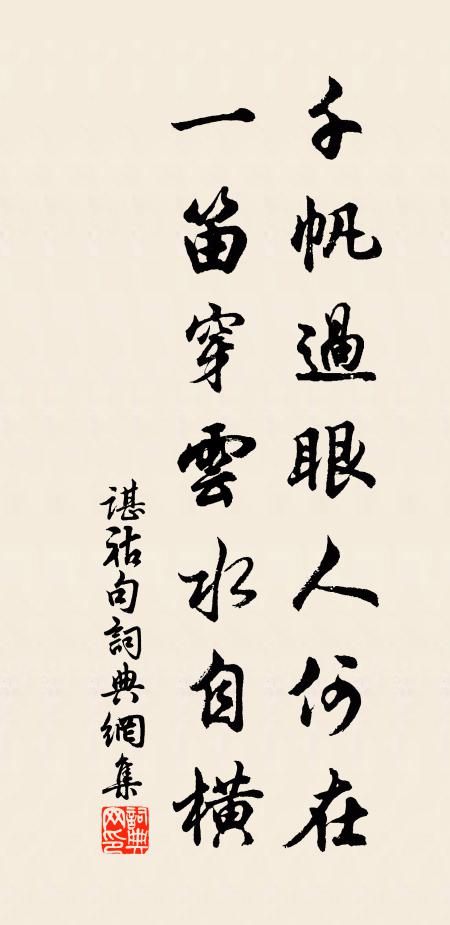 千帆過眼人何在
一笛穿雲水自橫
諶祜句詞典網集
詞典
网印